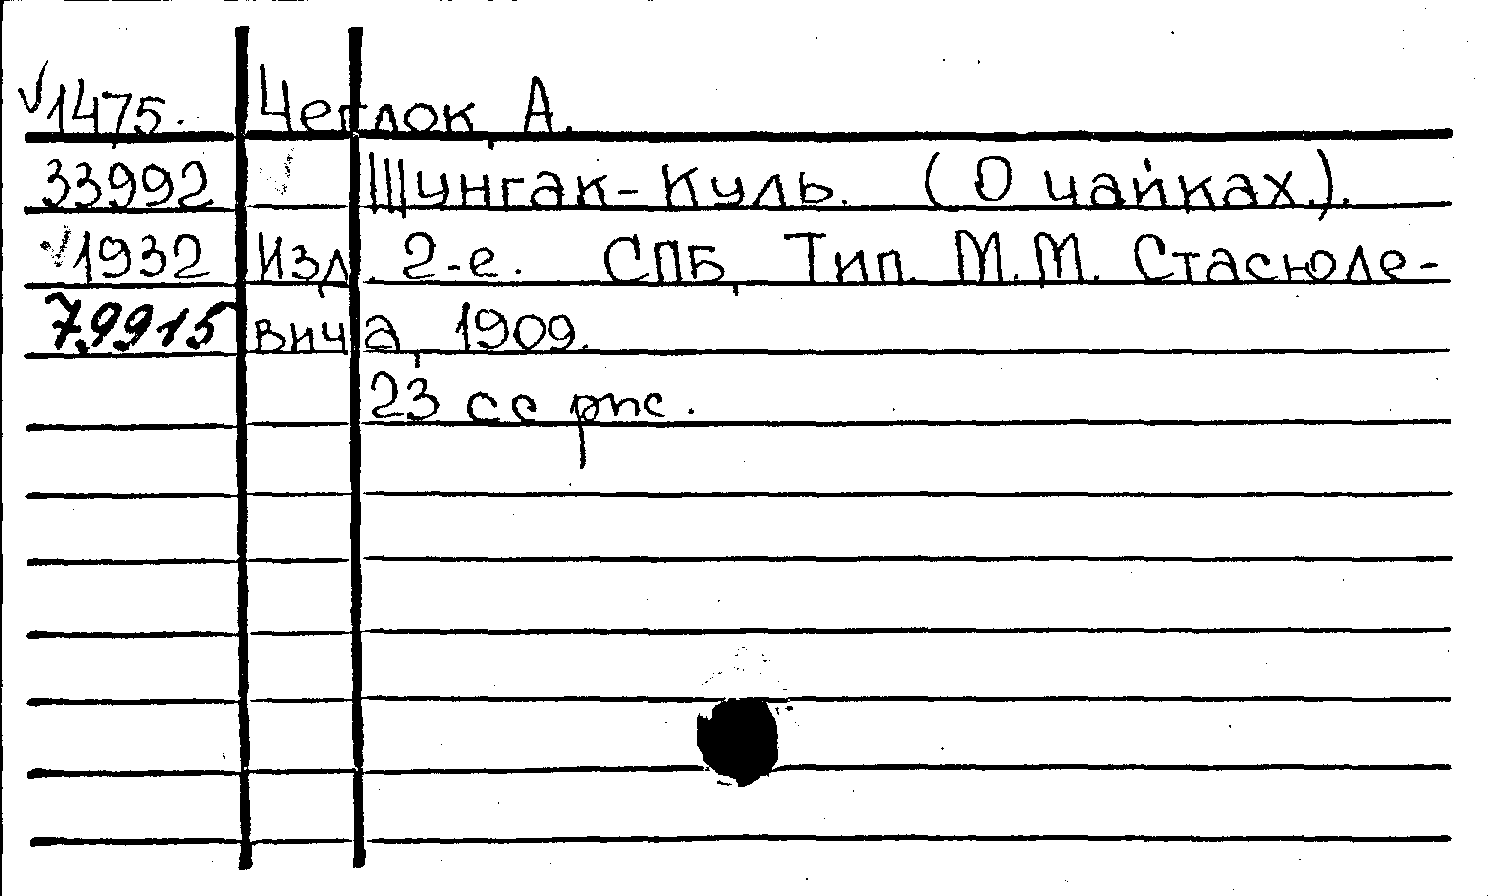 √1475. Чеглок, А.
33992 √ Шунгак-Куль. (О чайках.).
√1932 Изд. 2-е. СПБ, Тип. М.М. Стасюле-
79915 вича, 1909.
23 сс рис.